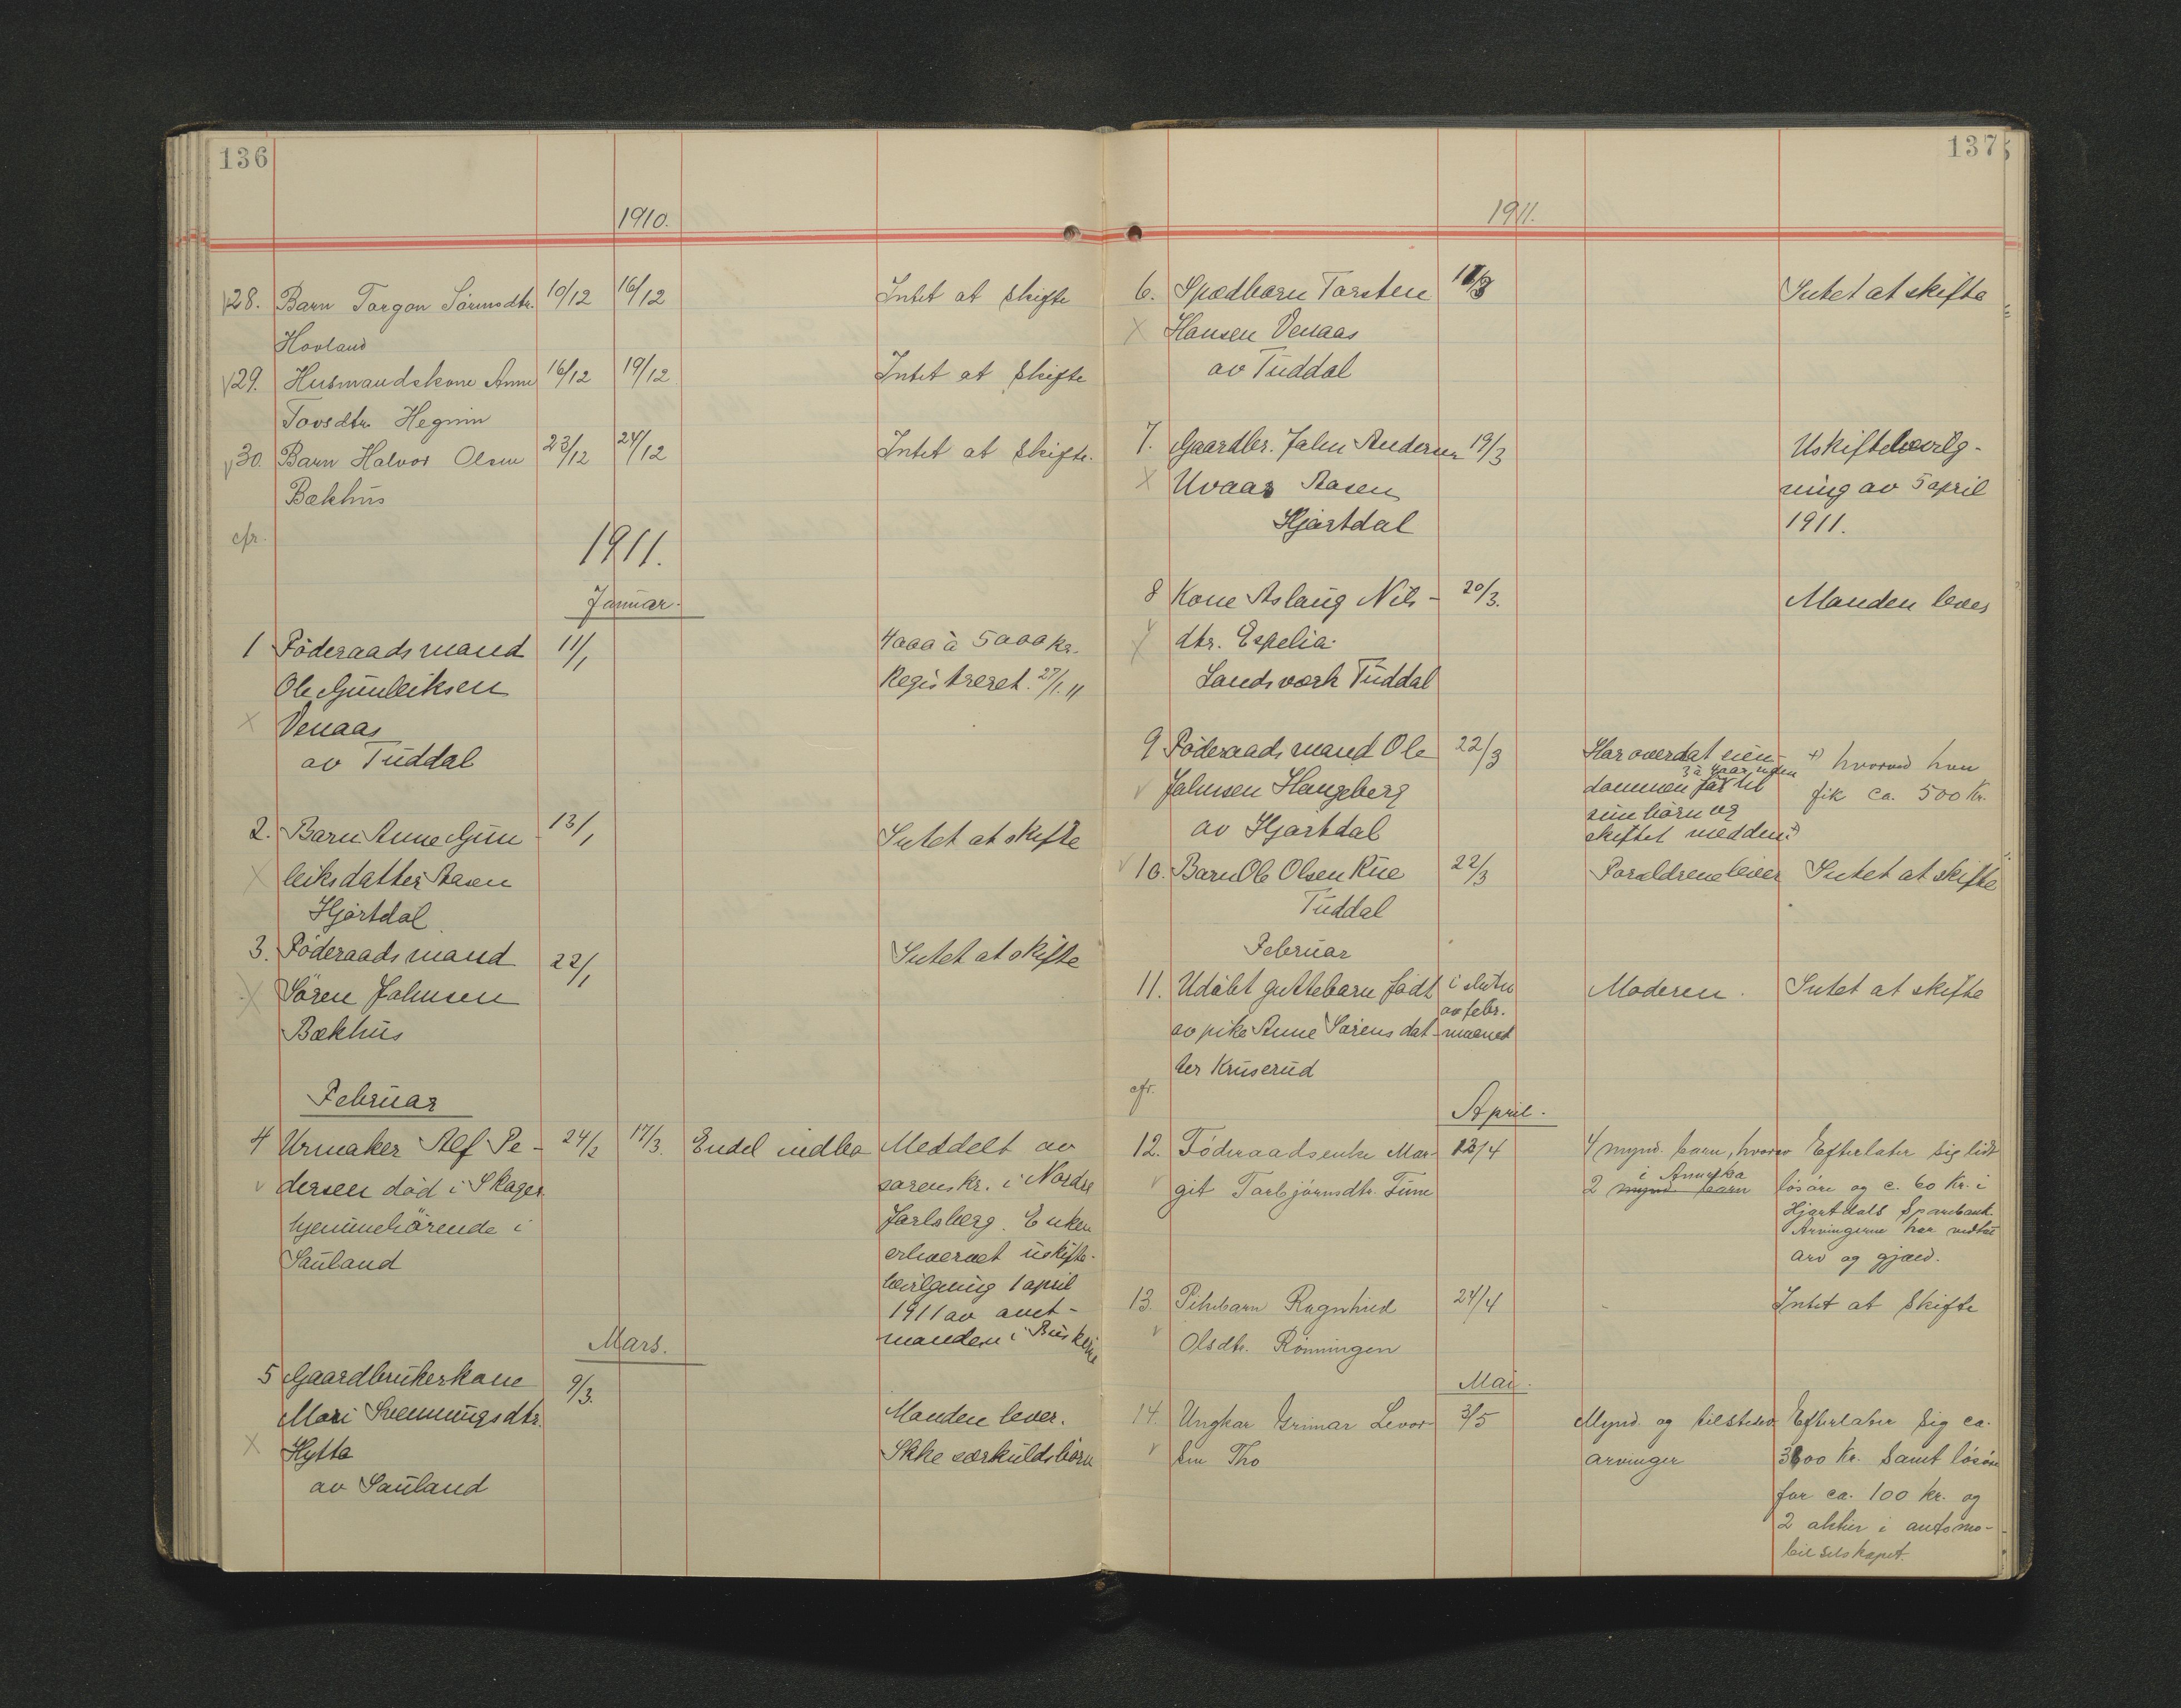 136
1910.
28. Barn Torgon Sörensdtr. 10/12 16/12 Intet at skifte
Hovland
29. Husmandskone Anne 16/12 19/12 Intet at skifte
Tovsdtr. Hegnin
30. Barn Halvor Olsen 23/12 24/12 Intet at skifte.
Bækhus
cfr.
1911.
Januar.
1 Föderaadsmand 11/1 4000 à 5000 kr.
Ole Gunleiksen Registreret. 27/1.11
x Venaas
av Tuddal
2. Barn Anne Gun- 13/1 Intet at skifte
x leiksdatter Aasen
Hjartdal
3. Föderaadsmand 22/1 Intet at skifte
x Sören Johnsen
Bækhus
Februar
4 Urmaker Alf Pe- 24/2 17/3. Endel indbo Meddelt av
v dersen död i Skager sorenskr. i Nordre
hjemmehörende i Jarlsberg. Enken
Sauland erhvervet uskifte-
bevilgning 1 april
1911 av amt-
manden i Buskerud
Mars.
5 Gaardbrukerkone 9/3.
Mari Svenningsdtr. Manden lever.
x Hytta Ikke særkuldsbörn
av Sauland
137
1911.
6. Spædbarn Torsten 18/3 Intet at skifte
x Hansen Venaas
av Tuddal
7. Gaardbr. John Andersen 19/3 Uskiftebevilg-
x Uvaas Aasen ning av 5 april
Hjartdal 1911.
8 Kone Aslaug Nils- 20/3. Manden lever
x dtr. Espelia
Landsværk Tuddal
9 Föderaadsmand Ole 22/3 Har overdat eien- +) hvorved hun
3 à 4 aar siden
v Johnsen Haugeberg dommen før til fik ca. 500 Kr.
av Hjartdal sine börn og
skiftet med dem +)
v 10. Barn Ole Olsen Rue 22/3 Foreldrene lever Intet at skifte
Tuddal
Februar
11. Udöbt guttebarn födt i slutn Moderen. Intet at skifte
av febr.
av pike Anne Sörensdat- maaned
ter Kruserud
cfr.
April.
12. Föderaadsenke Mar- 13/4 4 mynd. barn, hvorav Efterlater sig lidt
i Amerika
v git Torbjörnsdtr. Tune 2 mynd barn lösöre og c. 60 Kr. i
Hjartdals Sparebank.
Arvingerne har vedtat
arv og gjæld.
13. Pikebarn Ragnhild 24/4 Intet at skifte
v Olsdtr. Rönningen
Mai.
14. Ungkar Grimar Levor- 3/5 Mynd. og tilstedev. Efterlater sig ca.
v sen Tho arvinger 3600 Kr. samt lösöre
for ca. 100 kr. og
2 aktier i automo-
bilselskapet.